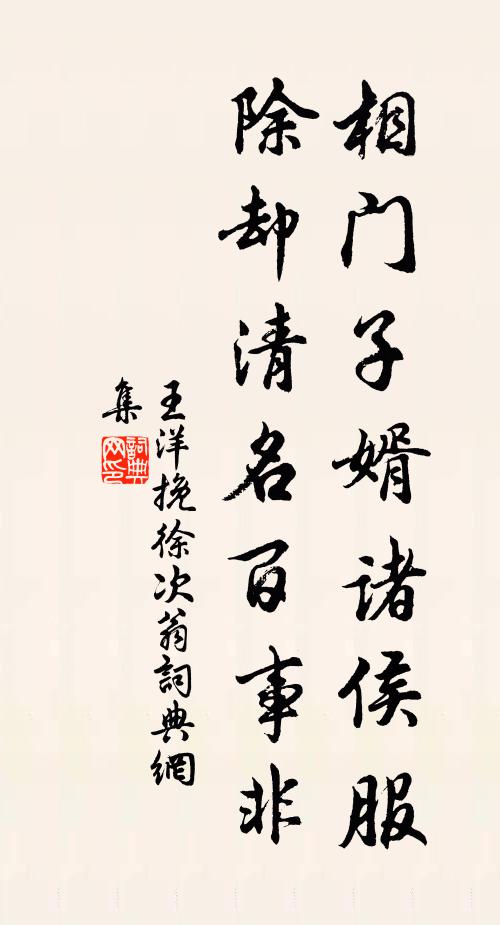 相门子婿诸侯服
除却清名百事非
王洋挽徐次翁詞典網
集
詞典
网印